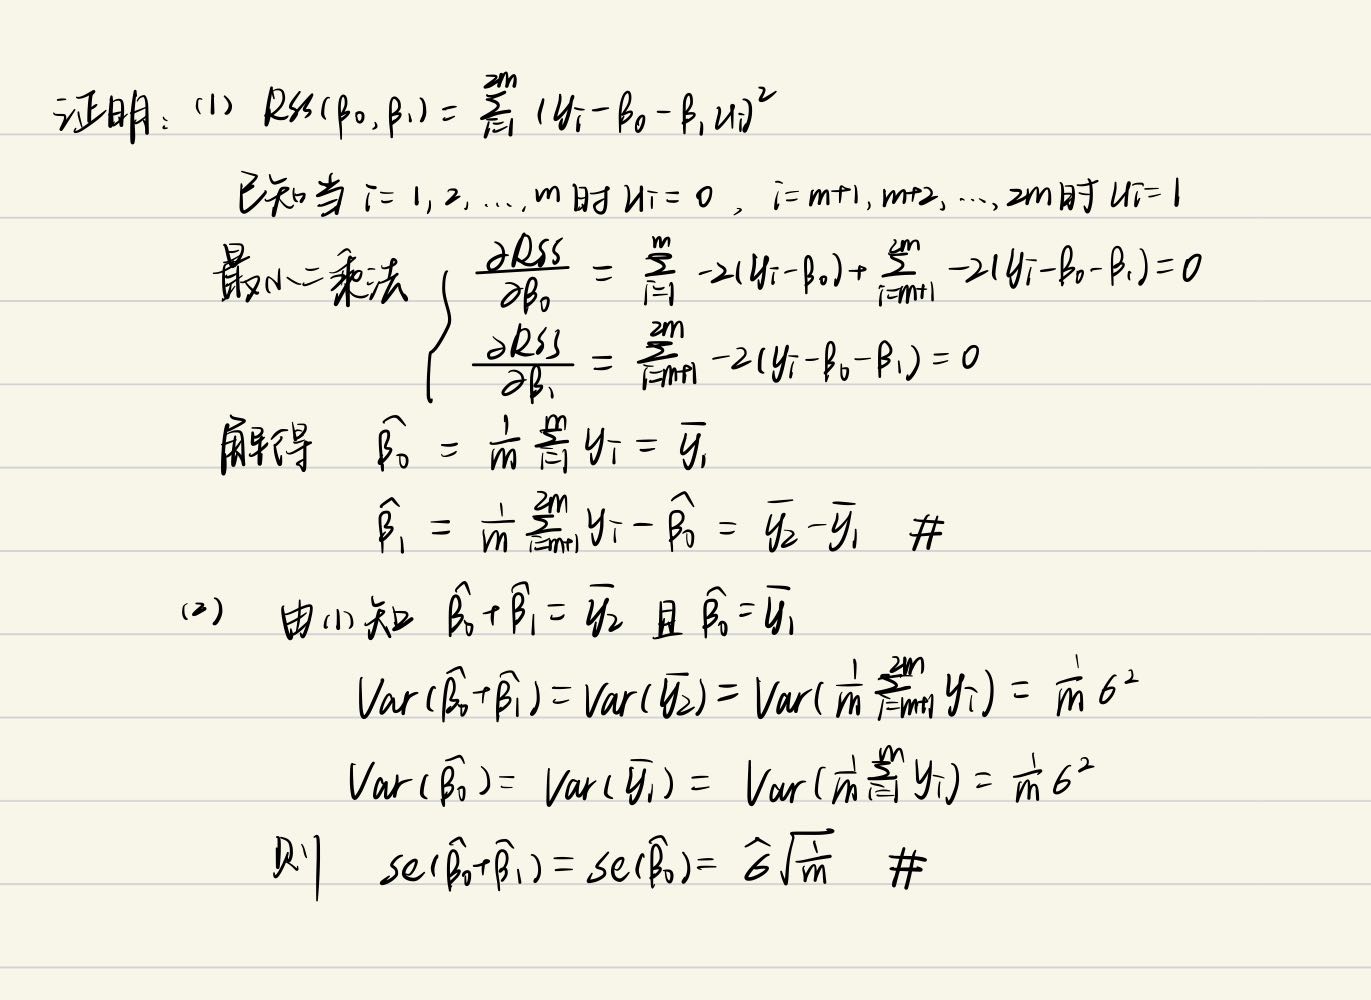 证明: (1) RSS(β₀, β₁) = Σ_{i=1}^{2m} (yᵢ - β₀ - β₁uᵢ)²
已知当 i = 1, 2, ..., m 时 uᵢ = 0, i = m+1, m+2, ..., 2m 时 uᵢ = 1
最小二乘法 { ∂RSS/∂β₀ = Σ_{i=1}^{m} -2(yᵢ - β₀) + Σ_{i=m+1}^{2m} -2(yᵢ - β₀ - β₁) = 0
∂RSS/∂β₁ = Σ_{i=m+1}^{2m} -2(yᵢ - β₀ - β₁) = 0
解得 β̂₀ = 1/m Σ_{i=1}^{m} yᵢ = ȳ₁
β̂₁ = 1/m Σ_{i=m+1}^{2m} yᵢ - β̂₀ = ȳ₂ - ȳ₁ #
(2) 由(1)知 β̂₀ + β̂₁ = ȳ₂ 且 β̂₀ = ȳ₁
Var(β̂₀ + β̂₁) = Var(ȳ₂) = Var(1/m Σ_{i=m+1}^{2m} yᵢ) = 1/m σ²
Var(β̂₀) = Var(ȳ₁) = Var(1/m Σ_{i=1}^{m} yᵢ) = 1/m σ²
则 se(β̂₀ + β̂₁) = se(β̂₀) = σ̂ √(1/m) #